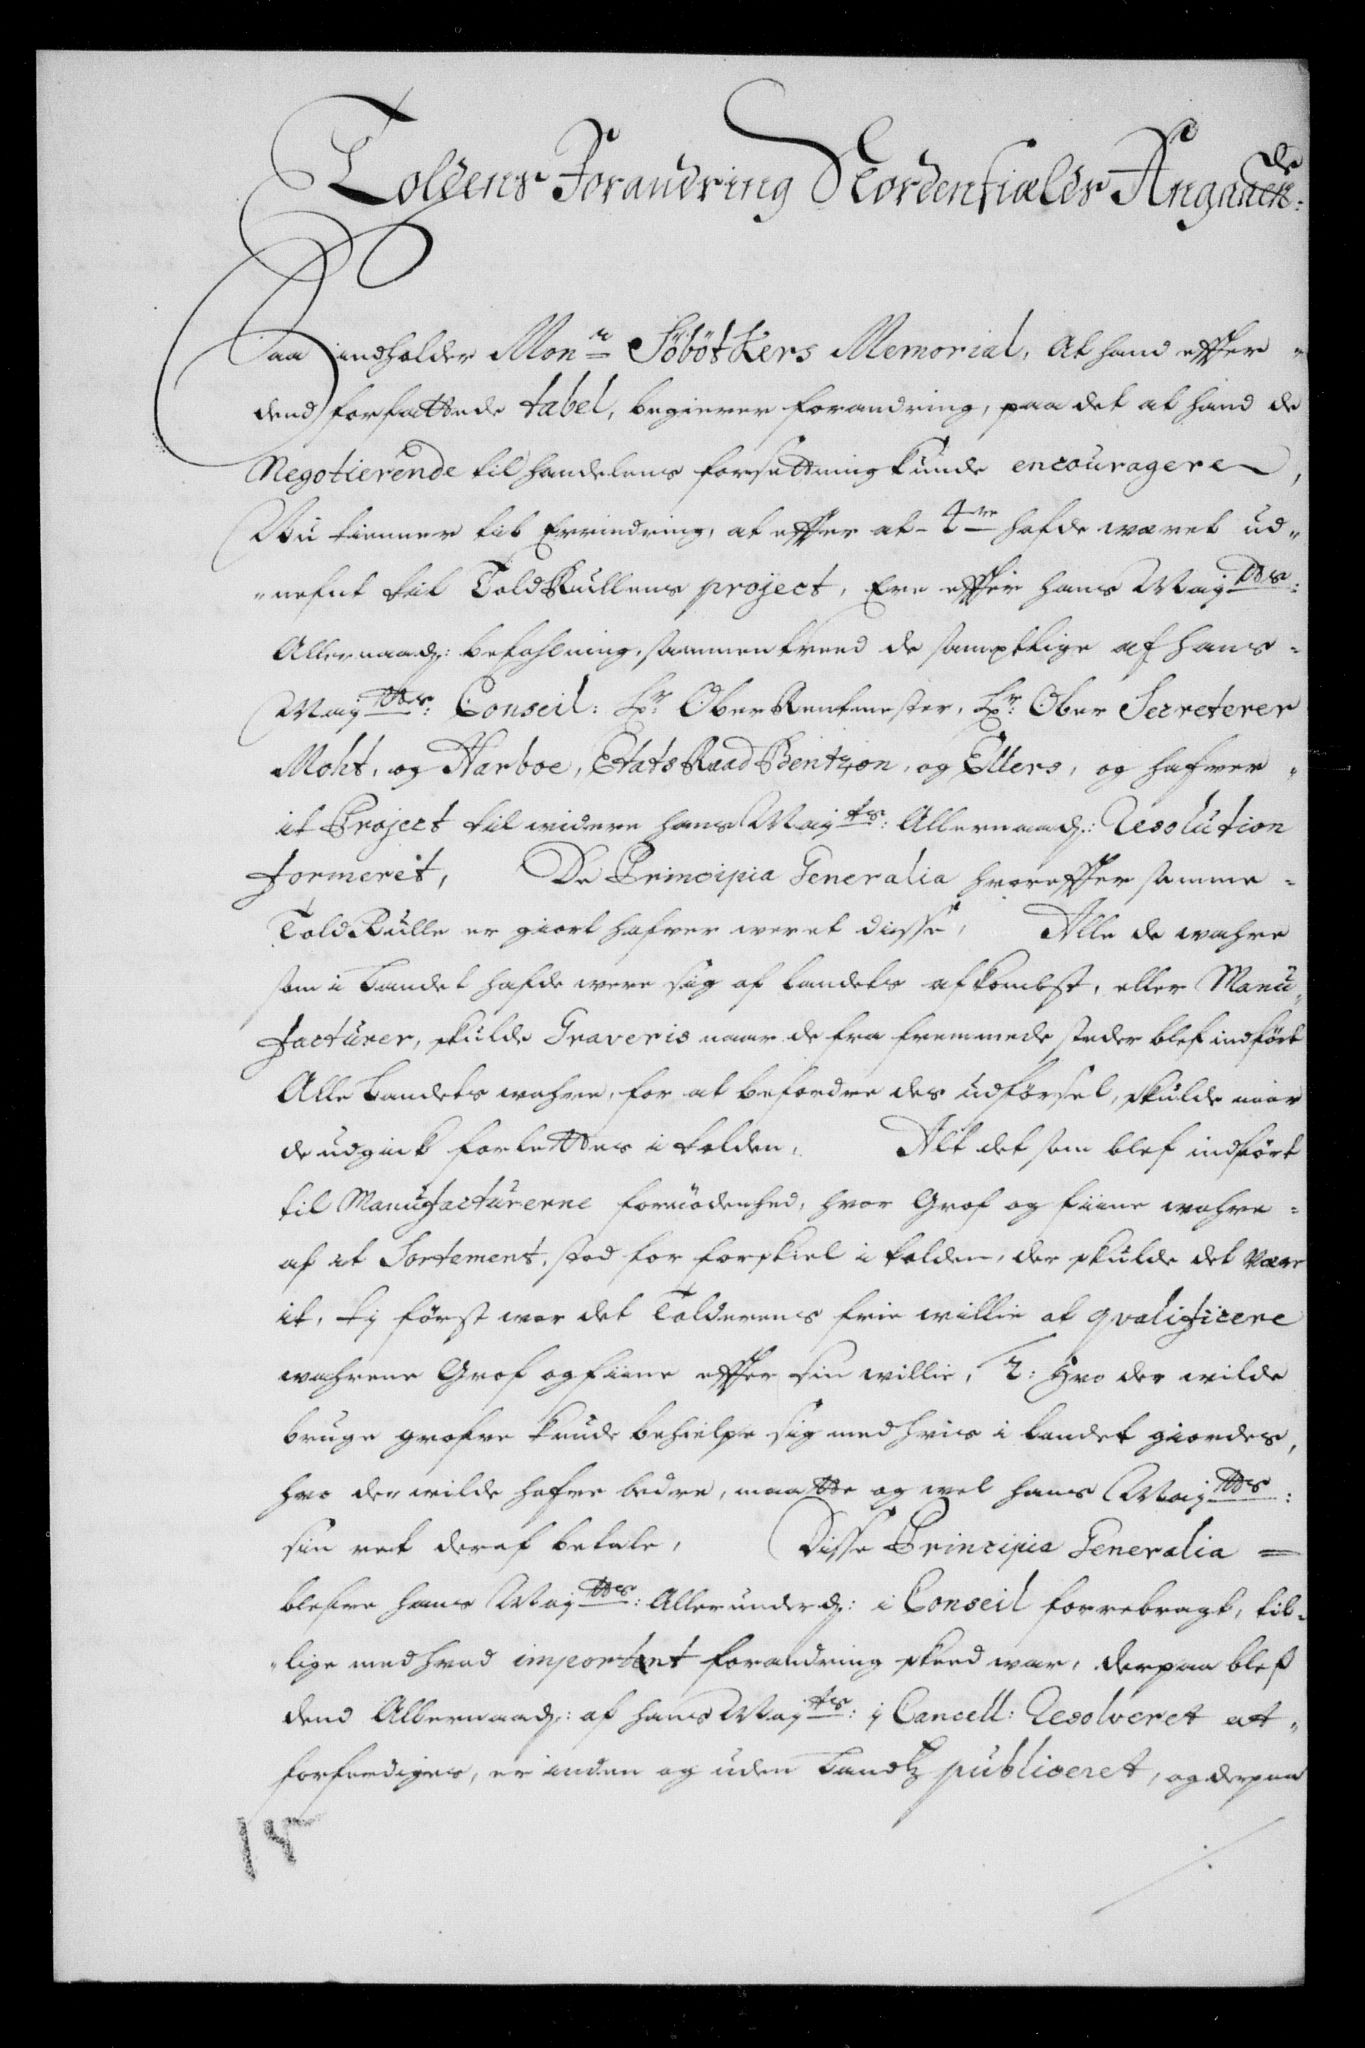 Toldens Forandring Nordenfields Angaaende:
Saa indholder Mon.r Söbötkers Memorial, at hand effter
dend forfattede tabel, begierer forandring, paa det at hand de
Negotierende til handelens forsettning kunde encouragere,
Nu tienner til Erindring, at effter at 4re hafde wæret ud-
nefnt til Told Rullens project, Ere effter hans May:tts:
Allernaad: befahlning, sammentreed de samptlige af hans
May:tts: Conseil: Hr: Ober Rentmester, Hr: Ober Secreterer
Moht, og Harboe, Etats Raad Bentzon, og Ellers, og hafver
it Project til widere hans May:ts: Allernaad: Resolution
formeret, De Principia Generalia hvoreffter samme
Told Rulle er giort hafver weret disse, Alle de wahre
som i Landet hafde were sig af landets afkombst, eller Manu-
facturer, skulde Graveris naar de fra fremmede steder blef indfört
Alle Landets wahre, for at befordre des udförsel, skulde naar
de udgick forlettes i tolden, Alt det som blef indfört
til Manufacturerne fornödenhed, hvor Grof og fiine wahre
af it Sortement, stod for forskiel i tolden, der skulde det være
it, ty först war det Tolderens frie willie at qvalificere
wahrene Grof og fiine effter sin willie, 2: Hvo der wilde
bruge grofve kunde behielpe sig med hvis i landet giordes,
hvo der wilde hafve bedre, maatte og wel hans May:tts:
sin ret deraf betale, Disse Principia Generalia
blefve hans May:tts: Allerunderd: i Conseil forrebragt, til-
lige med hvad important forandring skeed war, derpaa blef
dend Allernaad: af hans May:ts: j Cancell: Resolveret at
forferdiges, er inden og uden Landtz publiceret, og derpaa
18